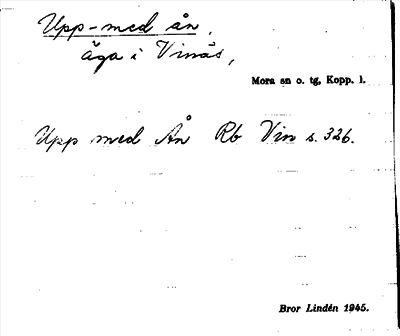 Upp-med ån,
äga i Vinäs,
Mora sn o. tg, Kopp. l.
Upp med Ån Rb Vin s. 326.
Bror Lindén 1945.